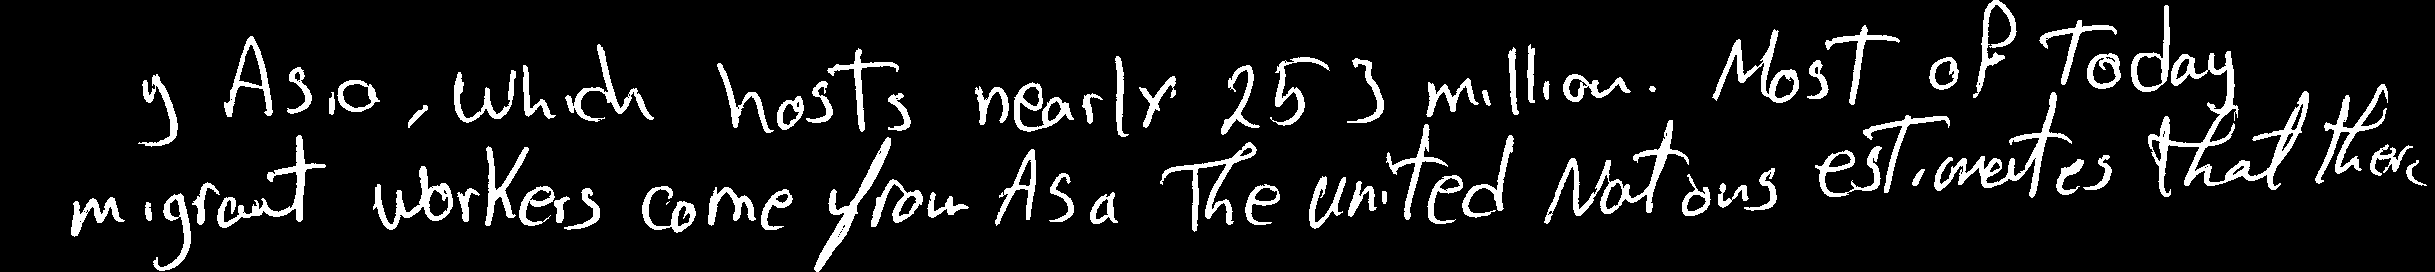 y Asia, which hosts nearly 253 million. Most of Today
migrant workers come from Asa The united Nations estimates that there